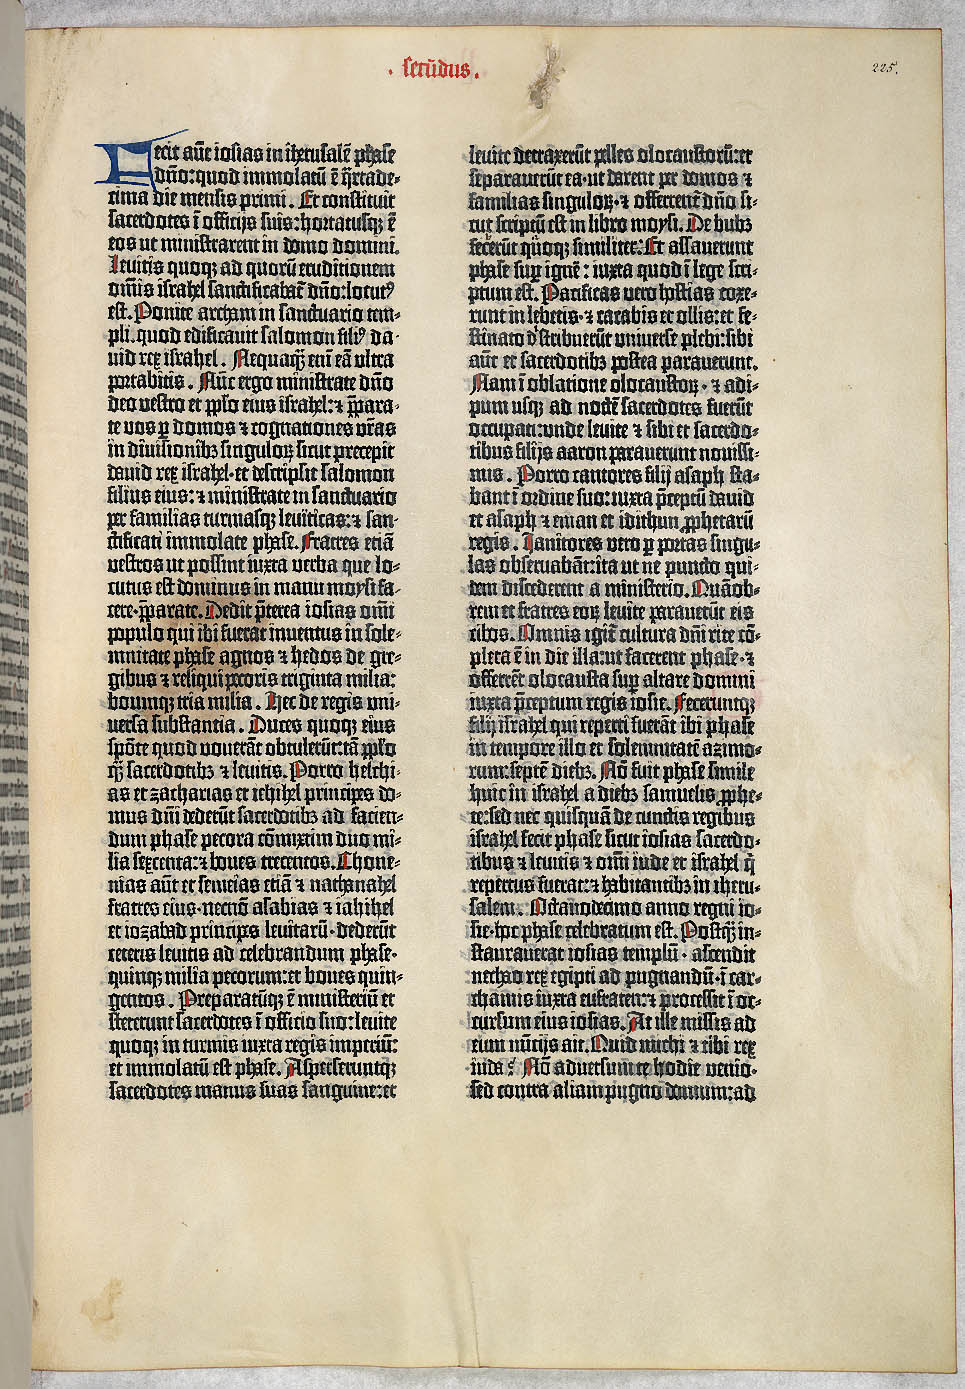 · secūdus .
225.
Fecit aūt iosias in iherusalē phase
dño: quod immolatū ē q̄rtade-
cima die mensis primi. Et constituit
sacerdotes ī officijs suis: hortatusqȝ ē
eos ut ministrarent in domo domini.
Leuitis quoqȝ ad quorū eruditionem
omīs israhel sanctificabat̄ dño: locutꝰ
est. Ponite archam in sanctuario tem-
pli. quod edificauit salomon filiꝰ da-
uid rex israhel. Nequaqȝ eni eā ultra
portabitis. Nūc ergo ministrate dño
deo vestro et pplo eius israhel: ⁊ p̄para-
te vos ꝑ domos ⁊ cognationes vr̄as
in diuisionibȝ singuloꝝ sicut precepit
dauid rex israhel · et descripsit salomon
filius eius: ⁊ ministrate in sanctuario
per familias turmasqȝ leuiticas: ⁊ san-
ctificati immolate phase. Fratres etiā
vestros ut possint iuxta verba que lo-
cutus est dominus in manu moysi fa-
cere · p̄parate. Dedit p̄terea iosias omī
populo qui ibi fuerat inuentus in sole-
mnitate phase agnos ⁊ hedos de gre-
gibus ⁊ reliqui pecoris triginta milia:
boumqȝ tria milia. Hec de regis uni-
uersa substantia. Duces quoqȝ eius
spōte quod vouerāt obtulerūt: tā pplo
qȝ sacerdotibȝ ⁊ leuitis. Porro helchi-
as et zacharias et iehihel principes do-
mus dñi dederūt sacerdotibȝ ad facien-
dum phase pecora cōmixtim duo mi-
lia sexcenta: ⁊ boues trecentos. Chone-
nias aūt et semeias etiā ⁊ nathanahel
fratres eius · necnō asabias ⁊ iahihel
et iozabad principes leuitarū · dederūt
ceteris leuitis ad celebrandum phase ·
quinqȝ milia pecorum: et boues quin-
gentos. Preparatūqȝ ē ministeriū et
steterunt sacerdotes ī officio suo: leuite
quoqȝ in turmis iuxta regis imperiū:
et immolatū est phase. Asperseruntqȝ
sacerdotes manu suas sanguine: et
leuite detraxerūt pelles olocaustorū: et
separauerūt ea · ut darent per domos ⁊
familias singuloꝝ · ⁊ offerrent̄ dño si-
cut scriptū est in libro moysi. De bubȝ
fecerūt quoqȝ similiter: Et assauerunt
phase supr ignē: iuxta quod ī lege scri-
ptum est. Pacificas vero hostias coxe-
runt in lebetis · ⁊ cacabis et ollis: et fe-
stinato d'stribuerūt universe plebi: sibi
aūt et sacerdotibȝ postea parauerunt.
Nam ī oblatione olocaustoꝝ · ⁊ adi-
pum usqȝ ad noctē sacerdotes fuerūt
occupati: unde leuite ⁊ sibi et sacerdo-
tibus filijs aaron parauerunt nouissi-
mis. Porro cantores filij asaph sta-
bant ī ordine suo: iuxta p̄ceptū dauid
et asaph ⁊ eman et idithun pphetarū
regis. Ianitores vero ꝑ portas singu-
las obseruabāt: ita ut ne puncto qui-
dem discederent a ministerio. Quāob-
rem et fratres eoꝝ leuite parauerūt eis
cibos. Omnis igit̄ cultura dñi rite cō-
pleta ē in die illa: ut facerent phase · ⁊
offerrēt olocausta supr altare domini
iuxta p̄ceptum regis iosie. Feceruntqȝ
filij israhel qui reperti fuerāt ibi phase
in tempore illo et solemnitatē azimo-
rum: septē diebȝ. Nō fuit phase simile
huic in israhel a diebȝ samuelis pphe-
te: sed nec quisquā de cunctis regibus
israhel fecit phase sicut iosias sacerdo-
tibus ⁊ leuitis ⁊ omī iude et israhel q̄
repertus fuerat: ⁊ habitantibȝ in iheru-
salem. Octauodecimo anno regni io-
sie · hoc phase celebratum est. Postqȝ in-
staurauerat iosias templū · ascendit
nechao rex egipti ad pugnandū · ī car-
chamis iuxta eufraten: ⁊ processit ī oc-
cursum eius iosias. At ille missis ad
eum nūcijs ait. Quid michi ⁊ tibi rex
iuda ē? Nō aduersum te hodie venio ·
sed contra aliam pugno domum: ad